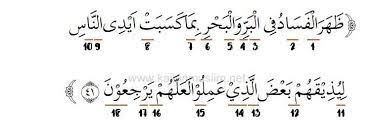 ﴿ ظَهَرَ الْفَسَادُ فِى الْبَرِّ وَالْبَحْرِ بِمَا كَسَبَتْ اَيْدِى النَّاسِ
10 9 8 7 6 5 4 3 2 1
لِيُذِيْقَهُمْ بَعْضَ الَّذِيْ عَمِلُوْا لَعَلَّهُمْ يَرْجِعُوْنَ ﴿٤١﴾
18 17 16 15 14 13 12 11